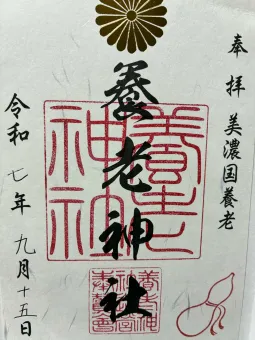 奉拝 美濃国養老
養老神社
養老
神社
令和七年九月十五日